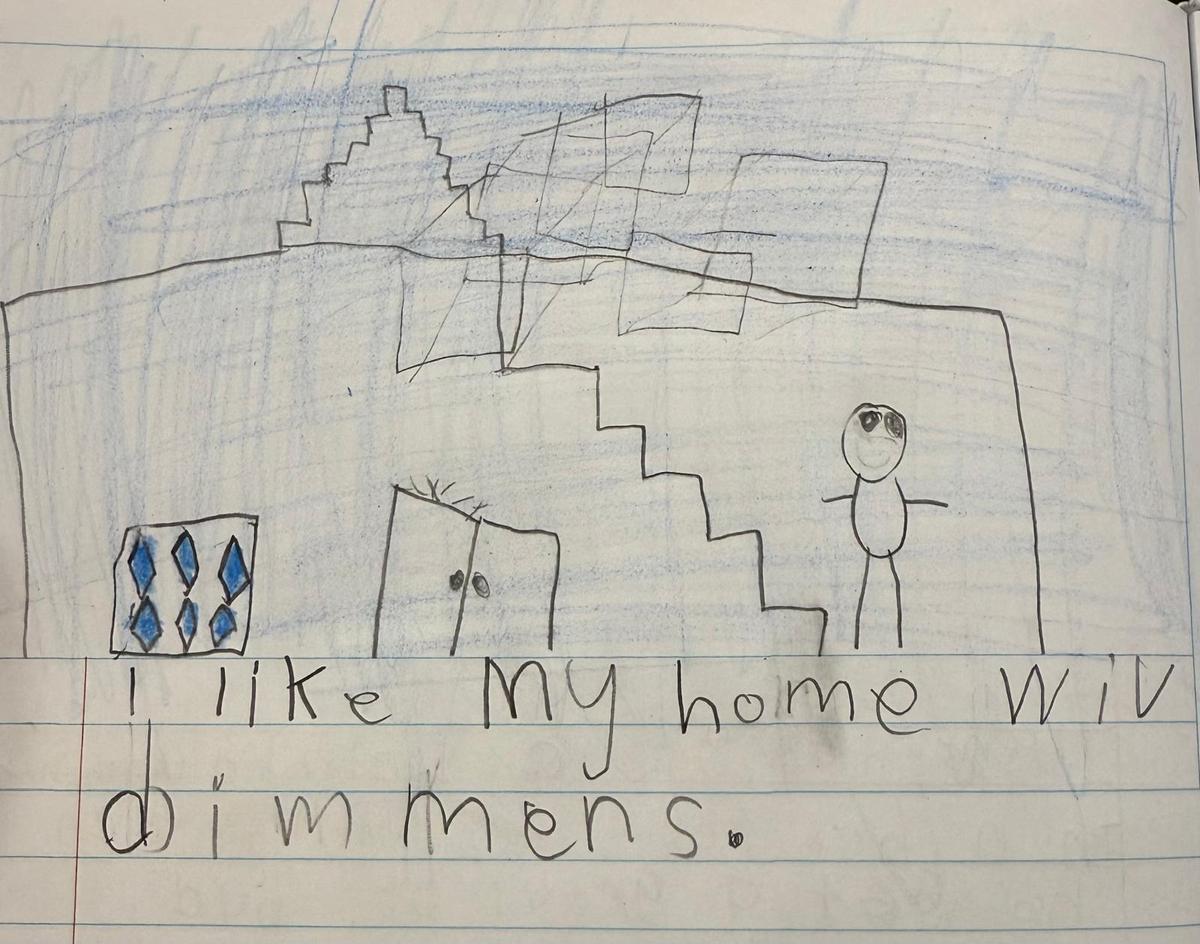 I like My home wiv
dimmens.